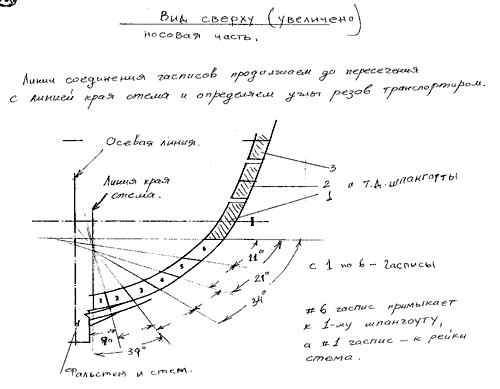 Вид сверху (увеличено)
носовая часть.
Линии соединения гасписов продолжаем до пересечения
с линией края стема и определяем углы резов транспортиром.
Осевая линия.
Линия края
стема.
3
2 и т.д. шпангорты
1
I
6
5
4
3
2
1
11°
21°
34°
9°
39°
с 1 по 6 - гасписы
#6 гаспис примыкает
к 1-му шпангоуту,
а #1 гаспис - к рейки
стема.
Фальстем и стем.